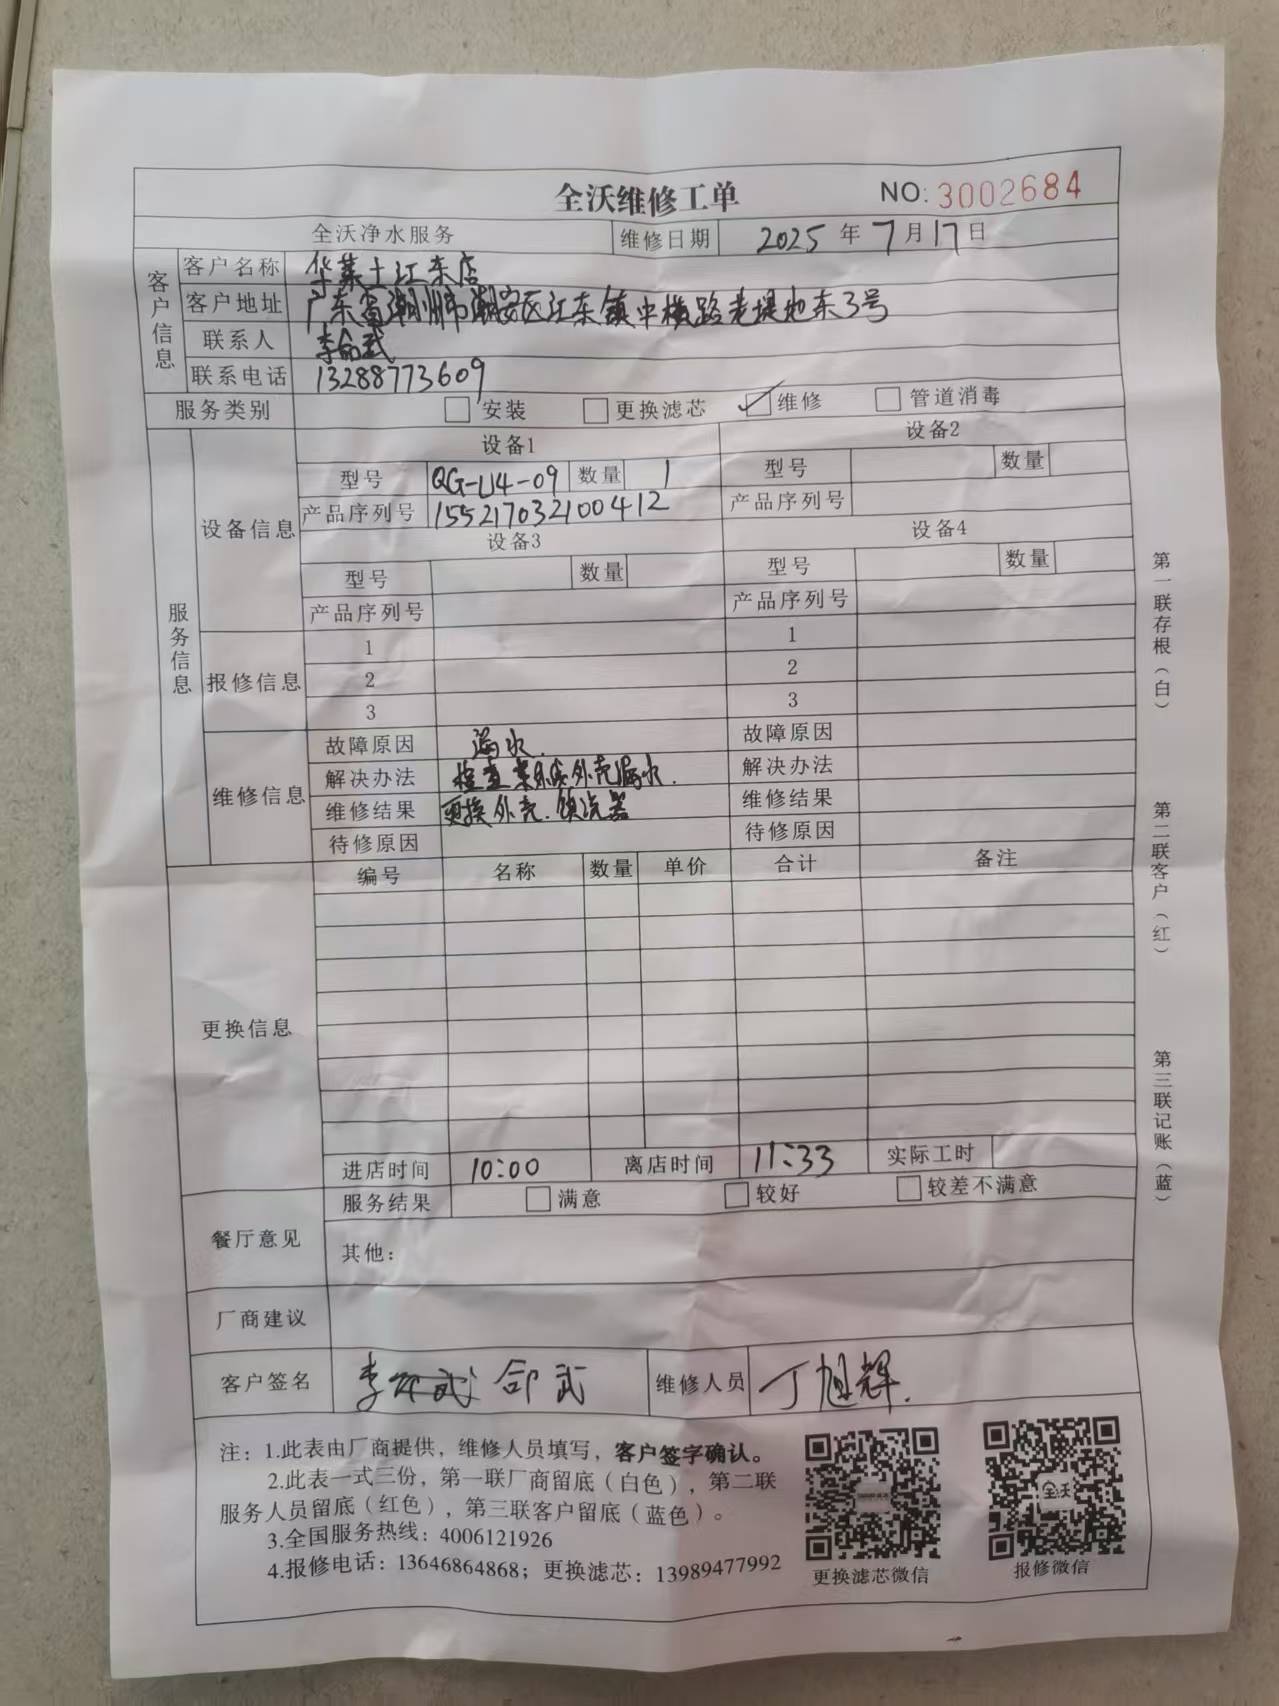 全沃维修工单 NO: 3002684
全沃净水服务 维修日期 2025 年 7 月 17 日
客户信息
客户名称 华莱士江东店
客户地址 广东省潮州市潮安区江东镇中横路老堤地东3号
联系人 李郃武
联系电话 13288773609
服务类别 安装 更换滤芯 ✓ 维修 管道消毒
服务信息
设备信息
设备1 设备2
型号 QG-U4-09 数量 1 型号 数量
产品序列号 155217032100412 产品序列号
设备3 设备4
型号 数量 型号 数量
产品序列号 产品序列号
报修信息
1 1
2 2
3 3
维修信息
故障原因 漏水. 故障原因
解决办法 检查 外壳漏水. 解决办法
维修结果 更换外壳. 维修结果
待修原因 待修原因
更换信息
编号 名称 数量 单价 合计 备注
进店时间 10:00 离店时间 11:33 实际工时
餐厅意见
服务结果 满意 较好 较差不满意
其他:
厂商建议
客户签名 李 郃武 维修人员 丁旭辉.
注: 1.此表由厂商提供，维修人员填写，客户签字确认。
2.此表一式三份，第一联厂商留底（白色），第二联
服务人员留底（红色），第三联客户留底（蓝色）。
3.全国服务热线: 4006121926
4.报修电话: 13646864868; 更换滤芯: 13989477992
更换滤芯微信 报修微信
全沃
第一联存根（白）
第二联客户（红）
第三联记账（蓝）